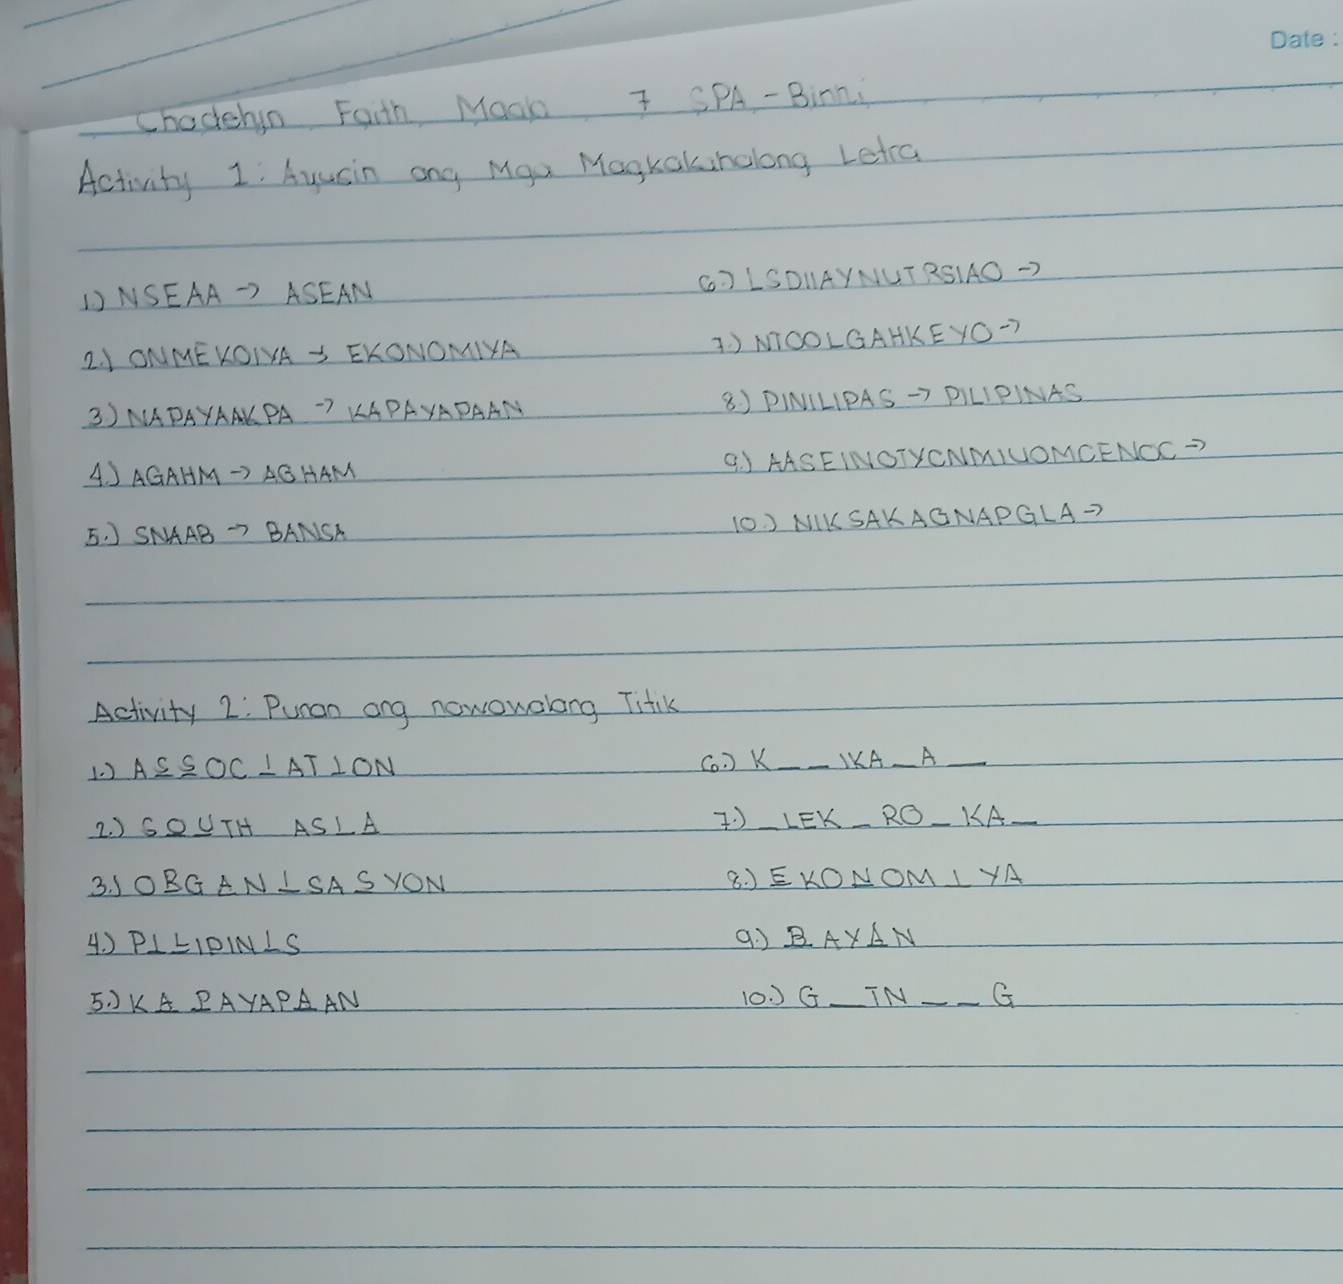 Date :
Chadelyn Faith Maab 7 SPA - Binhi
Activity 1: Ayusin ang Mga Magkakahalong Letra
1.) NSEAA → ASEAN
2.) ONMEKOIYA → EKONOMIYA
3.) NAPAYAAKPA → KAPAYAPAAN
4.) AGAHM → AGHAM
5.) SNAAB → BANSA
6.) LSDIIAYNUTRSIAO →
7.) NTOOLGAHKEYO →
8.) PINILIPAS → PILIPINAS
9.) AASEINOTYCNMIUOMCENOC →
10.) NIKSAKAGNAPGLA →
Activity 2: Punan ang nawawalang Titik
1.) ASSOCIATION
2.) SOUTH ASIA
3.) ORGANISASYON
4.) PILIPINIS
5.) KAPAYAPAAN
6.) K__IKA_A_
7.) _LEK_RO_KA_
8.) EKONOMIYA
9.) BAYAN
10.) G_TN__G